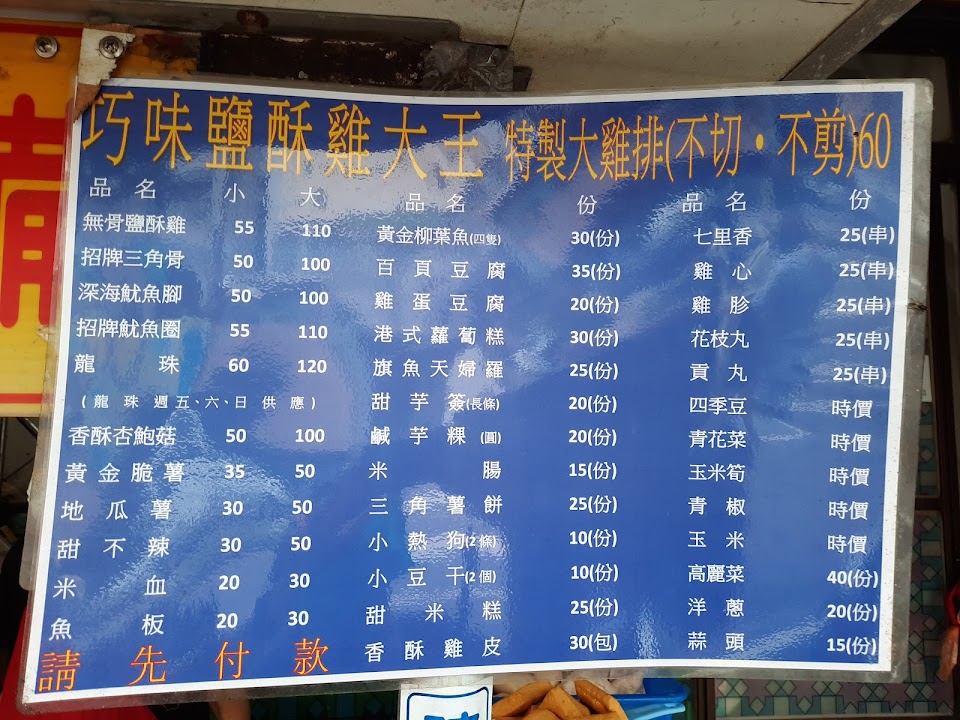 巧味鹽酥雞大王 特製大雞排(不切・不剪)60
品名 小 大
無骨鹽酥雞 55 110
招牌三角骨 50 100
深海魷魚腳 50 100
招牌魷魚圈 55 110
龍珠 60 120
(龍珠週五、六、日供應)
香酥杏鮑菇 50 100
黃金脆薯 35 50
地瓜薯 30 50
甜不辣 30 50
米血 20 30
魚板 20 30
請先付款
品名 份
黃金柳葉魚(四隻) 30(份)
百頁豆腐 35(份)
雞蛋豆腐 20(份)
港式蘿蔔糕 30(份)
旗魚天婦羅 25(份)
甜芋簽(長條) 20(份)
鹹芋粿(圓) 20(份)
米腸 15(份)
三角薯餅 25(份)
小熱狗(2條) 10(份)
小豆干(2個) 10(份)
甜米糕 25(份)
香酥雞皮 30(包)
品名 份
七里香 25(串)
雞心 25(串)
雞胗 25(串)
花枝丸 25(串)
貢丸 25(串)
四季豆 時價
青花菜 時價
玉米筍 時價
青椒 時價
玉米 時價
高麗菜 40(份)
洋蔥 20(份)
蒜頭 15(份)